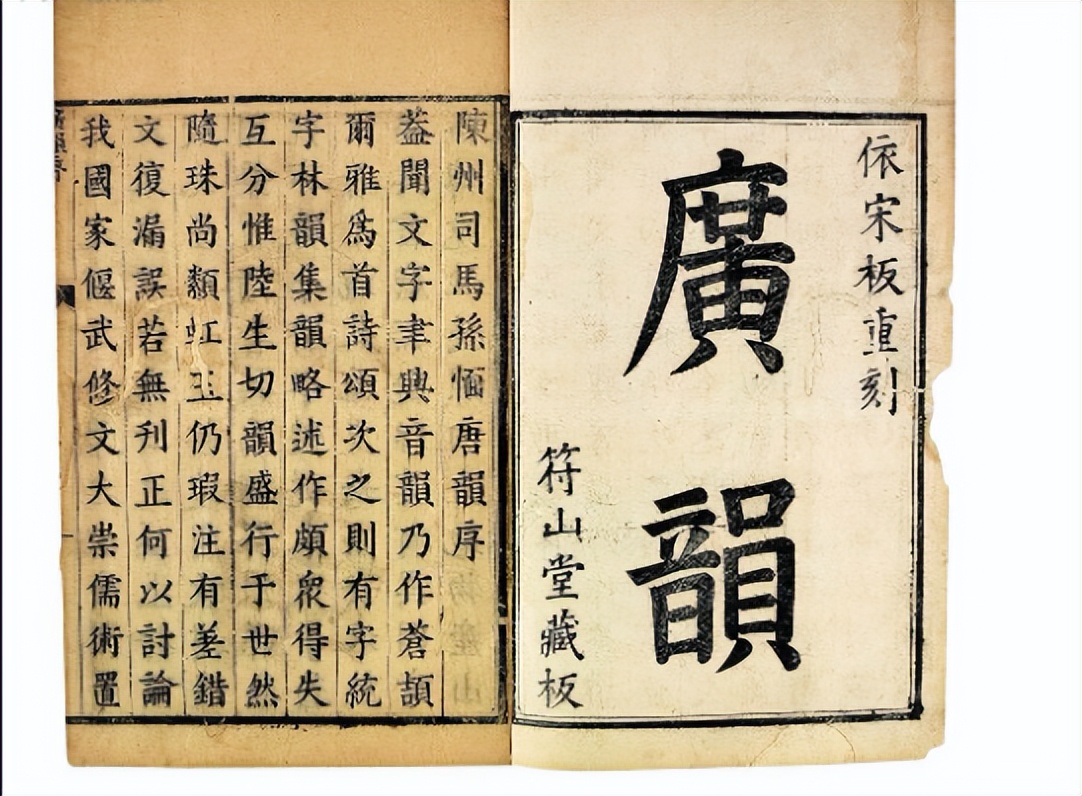 依宋板重刻
廣韻
符山堂藏板
陳州司馬孫愐唐韻序
葢聞文字聿興音韻乃作蒼頡
爾雅爲首詩頌次之則有字統
字林韻集韻略述作頗衆得失
互分惟陸生切韻盛行于世然
隨珠尚纇虹玉仍瑕注有差錯
文復漏誤若無刋正何以討論
我國家偃武修文大崇儒術置